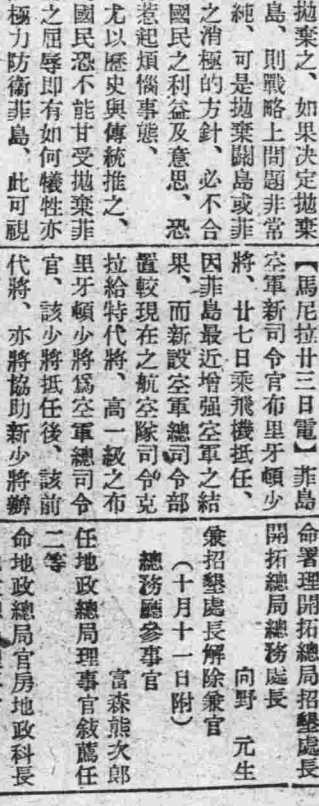 拋棄之、如果决定拋棄
島、則戰略上問題非常
純、可是拋棄關島或菲
之消極的方針、必不合
國民之利益及意思、恐
惹起煩惱事態、
尤以歷史與傳統推之、
國民恐不能甘受拋棄菲
之屈辱即有如何犧牲亦
極力防衛菲島、此可視
【馬尼拉廿三日電】菲島
空軍新司令官布里牙頓少
將、廿七日乘飛機抵任、
因菲島最近增强空軍之結
果、而新設空軍總司令部
置較現在之航空隊司令克
拉給特代將、高一級之布
里牙頓少將爲空軍總司令
官、該少將抵任後、該前
代將、亦將協助新少將辦
命署理開拓總局招墾處長
開拓總局總務處長
向野 元生
兼招墾處長解除兼官
（十月十一日附）
總務廳參事官
富森熊次郎
任地政總局理事官敍薦任
二等
命地政總局官房地政科長